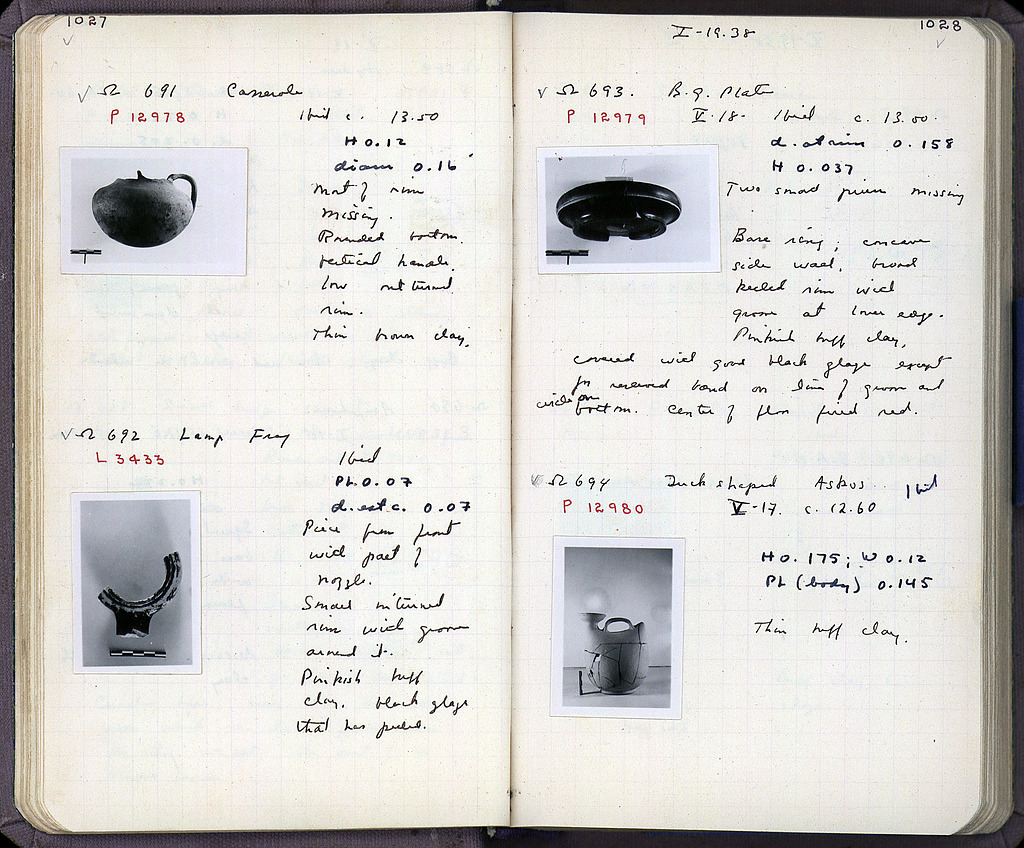 1027
Ω 691 Casserole
P 12978
Ibid c. 13.50
H 0.12
diam 0.16
Most of rim
missing.
Rounded bottom.
Vertical handle.
Low outturned
rim.
Thin brown clay.
Ω 692 Lamp Frag
L 3433
Ibid
PL 0.07
d. est c. 0.07
Piece from front
with part of
nozzle.
Small inturned
rim with groove
around it.
Pinkish buff
clay, black glaze
that has peeled.
V-19.38
1028
Ω 693. B.g. Plate
P 12979
V-18- Ibid c. 13.00.
d. at rim 0.158
H 0.037
Two small pieces missing
Base ring; concave
side wall, broad
keeled rim with
groove at lower edge.
Pinkish buff clay,
covered with good black glaze except
for reserved band on line of groove and
circle on bottom. Center of floor fired red.
Ω 694 Duck shaped Askos Ibid
P 12980
V-17. c. 12.60
H 0.175; W 0.12
PL (body) 0.145
Thin buff clay.